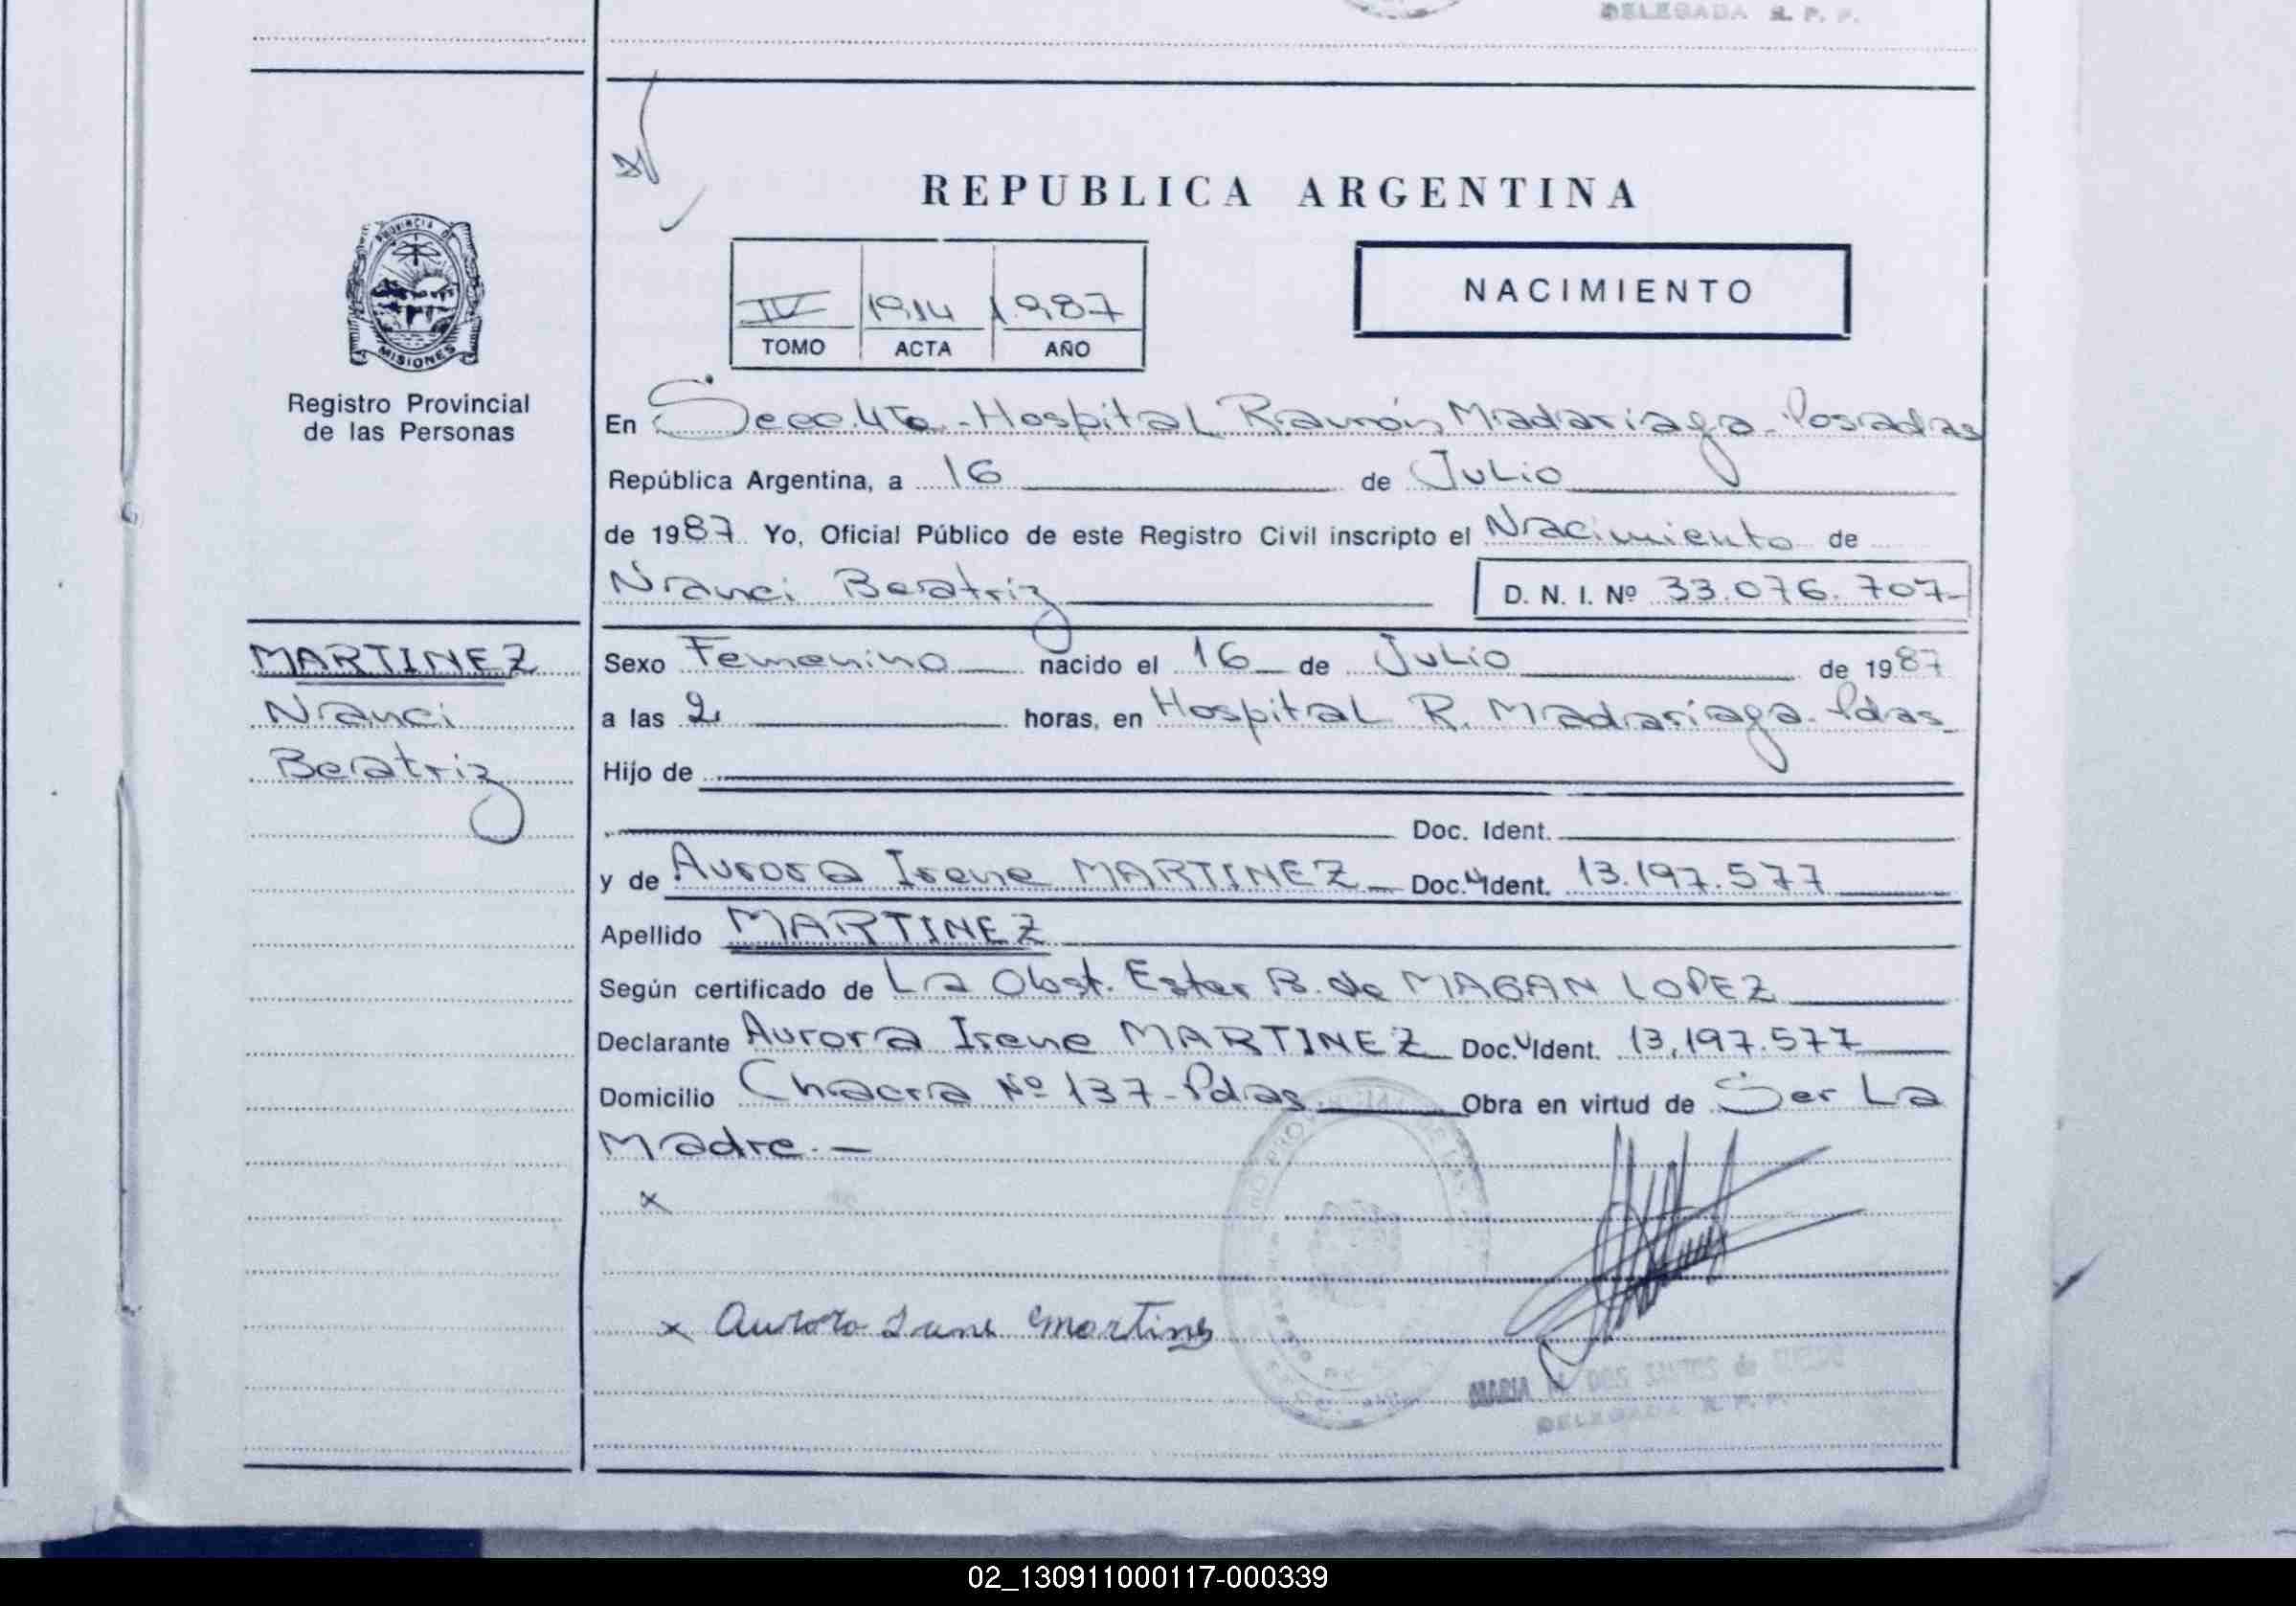 DELEGADA R. P. P.
REPUBLICA ARGENTINA
PROVINCIA DE
MISIONES
IV 1914 1987
TOMO ACTA AÑO
NACIMIENTO
Registro Provincial
de las Personas
En Secc. 4ta - Hospital Ramón Madariaga - Posadas
República Argentina, a 16 de Julio
de 1987 Yo, Oficial Público de este Registro Civil inscripto el Nacimiento de
Nanci Beatriz D. N. I. Nº 33.076.707
MARTINEZ
Nanci
Beatriz
Sexo Femenino nacido el 16 de Julio de 1987
a las 2 horas, en Hospital R. Madariaga. Pdas
Hijo de
Doc. Ident.
y de Aurora Irene MARTINEZ Doc. Ident. 13.197.577
Apellido MARTINEZ
Según certificado de La Obst. Ester B. de MAGAN LOPEZ
Declarante Aurora Irene MARTINEZ Doc. Ident. 13.197.577
Domicilio Chacra Nº 137 - Pdas Obra en virtud de Ser La
Madre. -
x
x Aurora Irene Martines
MARIA M. DOS SANTOS de
DELEGADA R. P. P.
02_130911000117-000339